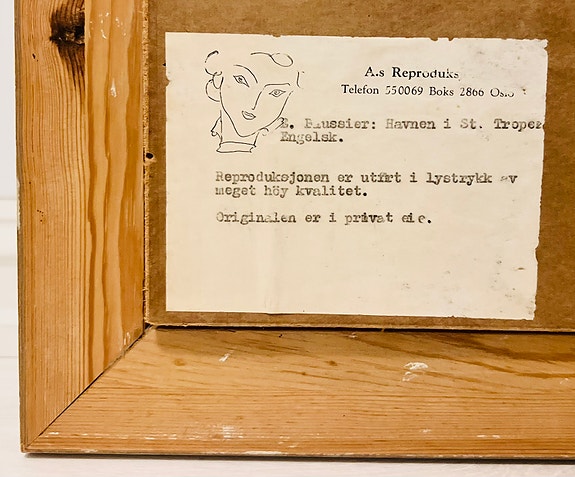 A.s Reproduks
Telefon 550069 Boks 2866 Oslo
Havnen i St. Tropez
Engelsk.
Reproduksjonen er utført i lystrykk av
meget höy kvalitet.
Originalen er i privat eie.